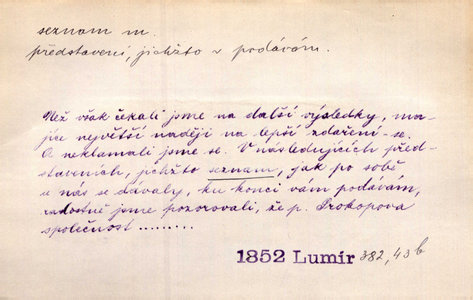 seznam m.
představení, jichžto v podávám.
Než však čekali jsme na další výsledky, ma-
jíce největší naději na lepší zdaření-se.
A neklamali jsme se. V následujících před-
staveních, jichžto seznam, jak po sobě
u nás se dávaly, ku konci vám podávám,
radostně jsme pozorovali, že p. Prokopova
společnost ........
1852 Lumír 382,43 b